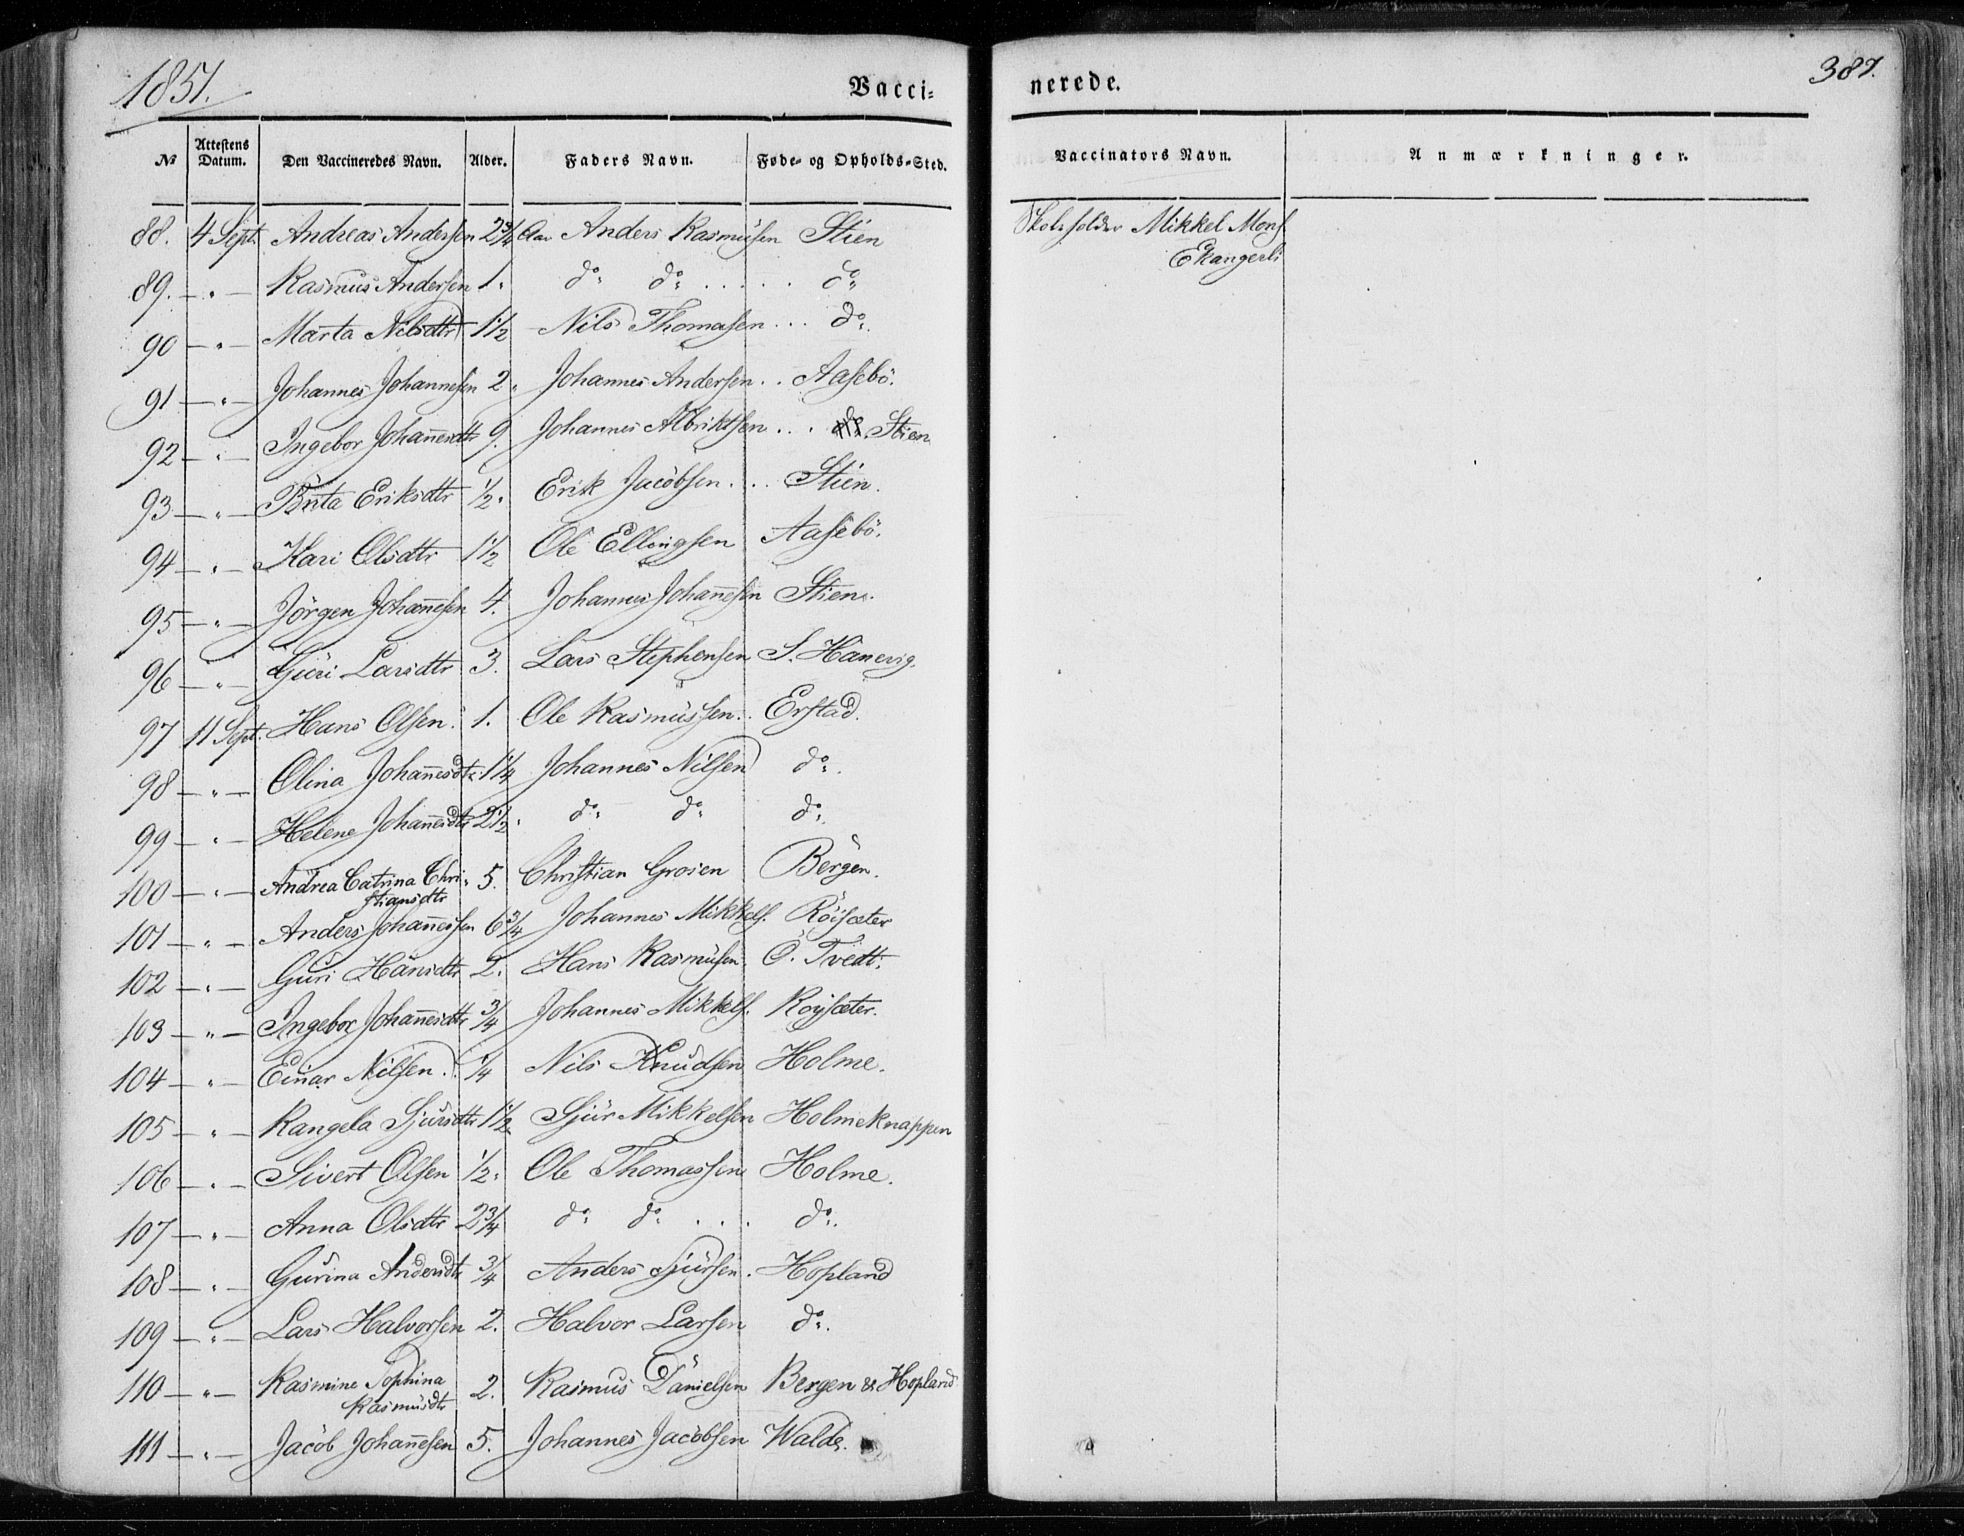 1851.
Vacci= nerede.
387.
№ Attestens Datum. Den Vaccineredes Navn. Alder. Faders Navn. Føde- og Opholds-Sted. Vaccinators Navn. Anmærkninger.
88. 4 Sept. Andreas Andersen 2 3/4 Aar Anders Rasmüsen Stien Skoleholder Mikkel Mons.
Ekangerli
89. — " — Rasmus Andersen 1. do. do. . . . . . do.
90 — " — Marta Nilsdtr 1 1/2 Nils Thomasen . . . do.
91 — " — Johannes Johannesen 2. Johannes Andersen . . Aasebö.
92 — " — Ingebor Johan̄esdtr 9. Johannes Albriktsen . . . Stien
93 — " — Brita Eriksdtr 1/2. Erik Jacobsen . . . Stien.
94 — " — Kari Olsdtr 1 1/2 Ole Ellingsen Aasebö.
95 — " — Jörgen Johan̄esen 4. Johannes Johan̄esen Stien.
96 — " — Güri Larsdtr 3. Lars Stephensen S. Hanevig.
97 11 Sept. Hans Olsen. 1. Ole Rasmüssen. . Erstad.
98 — " — Olina Johan̄esdtr 1 1/4 Johannes Nilsen do.
99 — " — Helene Johan̄esdtr 2 1/2. do. do. do.
100 — " — Andrea Catrina Chri- 5. Christian Grosen Bergen.
stiansdtr
101 — " — Anders Johan̄essen 6 3/4 Johannes Mikkels. Röisæter
102 — " — Guri Hansdtr 2. Hans Rasmüsen Ö. Tvedt.
103 — " — Ingebor Johan̄esdtr 3/4 Johannes Mikkels. Röysæter.
104 — " — Einar Nilsen. 1/4 Nils Knudsen Holme.
105 — " — Rangela Sjursdtr 1 1/2 Sjür Mikkelsen Holmeknappen
106 — " — Sivert Olsen 1/2. Ole Thomassen Holme.
107 — " — Anna Olsdtr 2 3/4 do. do. . . . do.
108 — " — Gurina Andersdtr 3/4 Anders Sjürsen. Hopland
109 — " — Lars Halvorsen 2. Halvor Larsen do.
110 — " — Rasmine Sophina 2. Rasmus Danielsen Bergen & Hopland
Rasmüsdtr
111 — " — Jacob Johan̄esen 5. Johannes Jacobsen Walde.